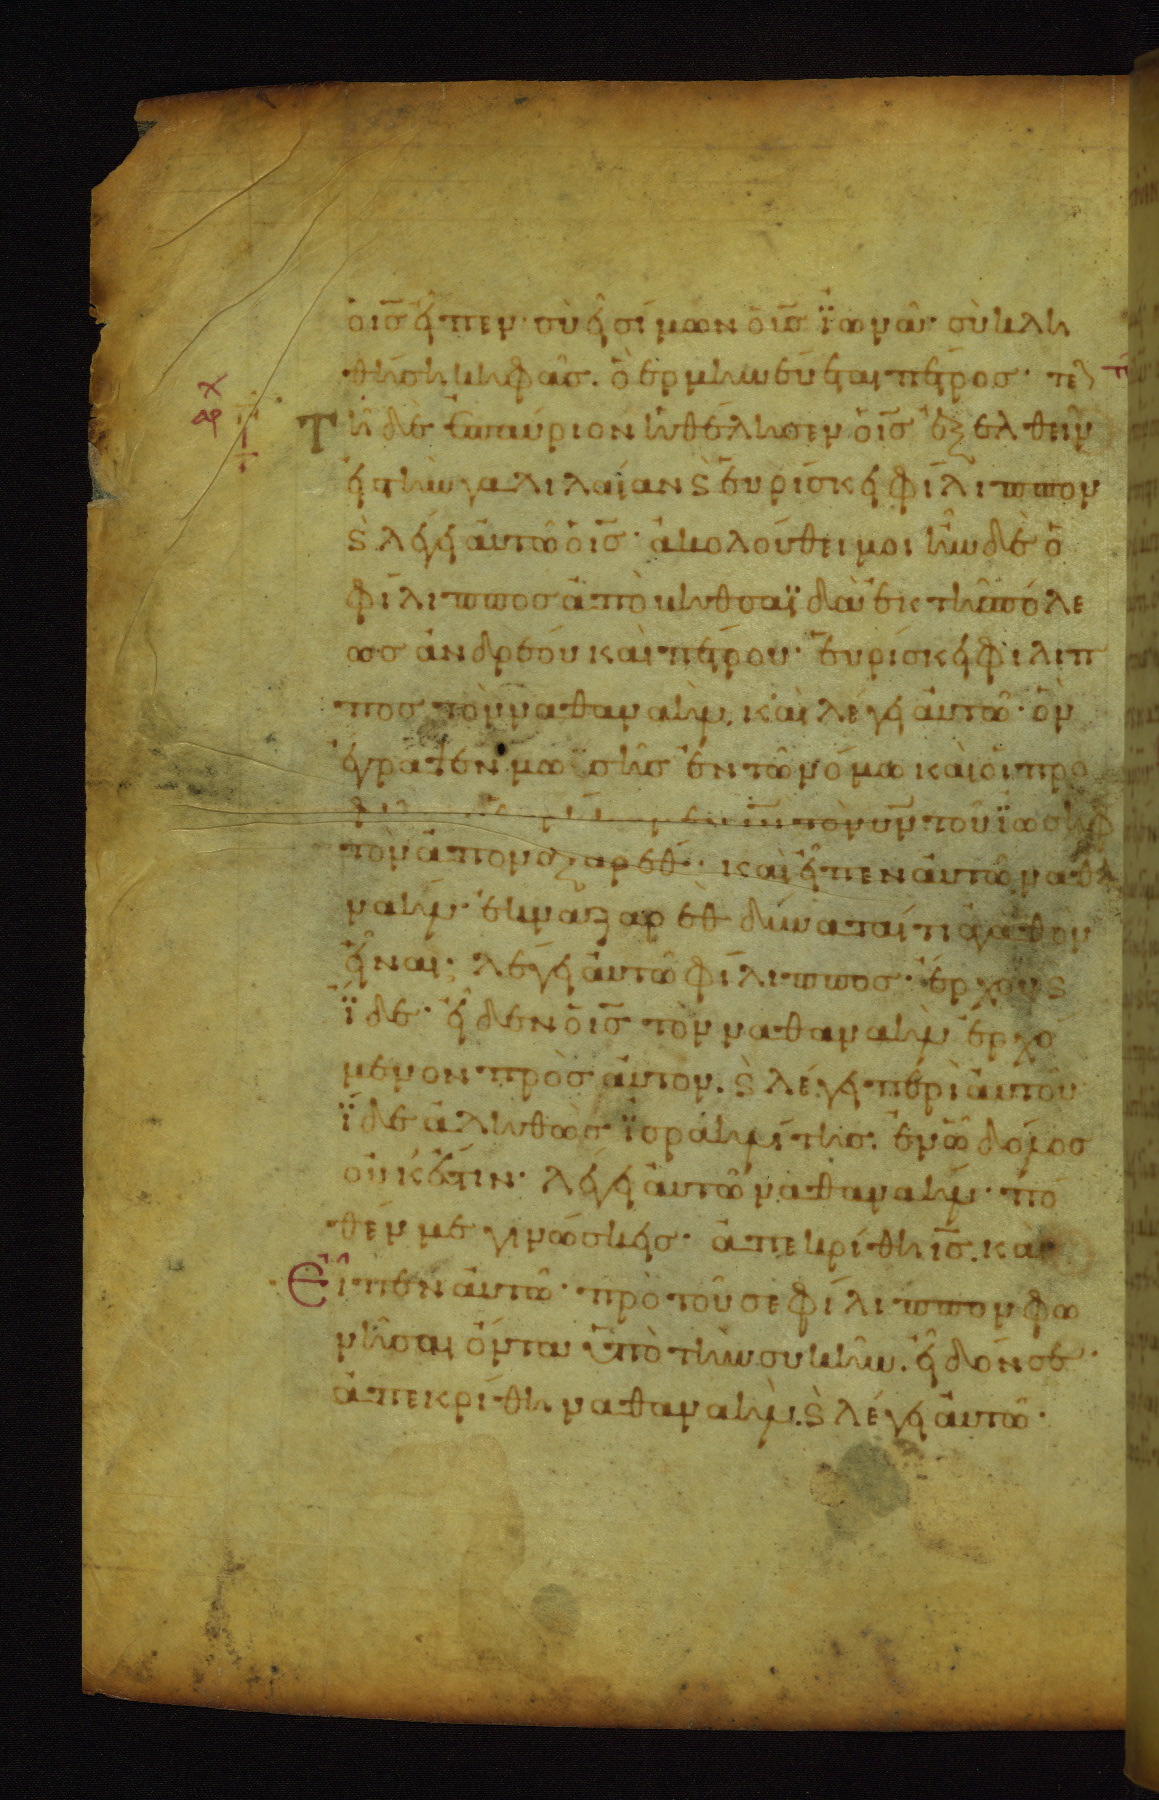 ὁ ι̅ς̅ εἶπεν· σὺ εἶ σίμων ὁ υ̅ς̅ ϊωνᾶ· σὺ κλη
θήση κηφᾶς. ὃ ερμηνεύεται πέτρος· τελ
Τῆ δὲ ἐπαύριον ἠθέλησεν ὁ ι̅ς̅ ἐξελθεῖν
εἰ τὴν γαλιλαίαν ϗ ευρίσκει φίλιππον
ϗ λέγει αὐτῶ ὁ ι̅ς̅· ἀκολούθει μοι ἦν δὲ ὁ
φίλιππος ἀπὸ κηθσαϊδὰ ἐκ τῆς πόλε
ως ἀνδρέου καὶ πέτρου· ευρίσκει φιλιπ
πος τὸν ναθαναὴλ. καὶ λέγει αὐτῶ· ὃν
έγραψεν μωϋσῆς ἐν τῶ νόμω καὶ οἱ προ
ι̅ν̅ τὸν υ̅ν̅ τοῦ ϊωσὴφ
τὸν ἀπὸ ναζαρέθ· καὶ εἶπεν αὐτῶ ναθα
ναήλ· ἐκ ναζαρέθ δύναταί τι ἀγαθον
εἶναι; λέγει αὐτῶ φίλιππος· έρχου ϗ
ΐδε· εἶδεν ὁ ι̅ς̅ τον ναθαναὴλ ερχο
μενον πρὸς αὐτον. ϗ λέγει περὶ αὐτοῦ
ΐδε ἀληθῶς ϊσραὴλίτης. εν ῶ δόλος
οὐκ έστιν· λέγει αὐτῶ ναθαναήλ· πό
θέν με γινώσκεις· ἀπεκρίθη ι̅ς̅. καὶ
Εἶπεν αὐτῶ· πρὸ τοῦ σε φίλιππον φω
νῆσαι όντα ὑπὸ τὴν συκῆν. εἶδόν σε·
ἀπεκρίθη ναθαναὴλ. ϗ λέγει αὐτῶ·